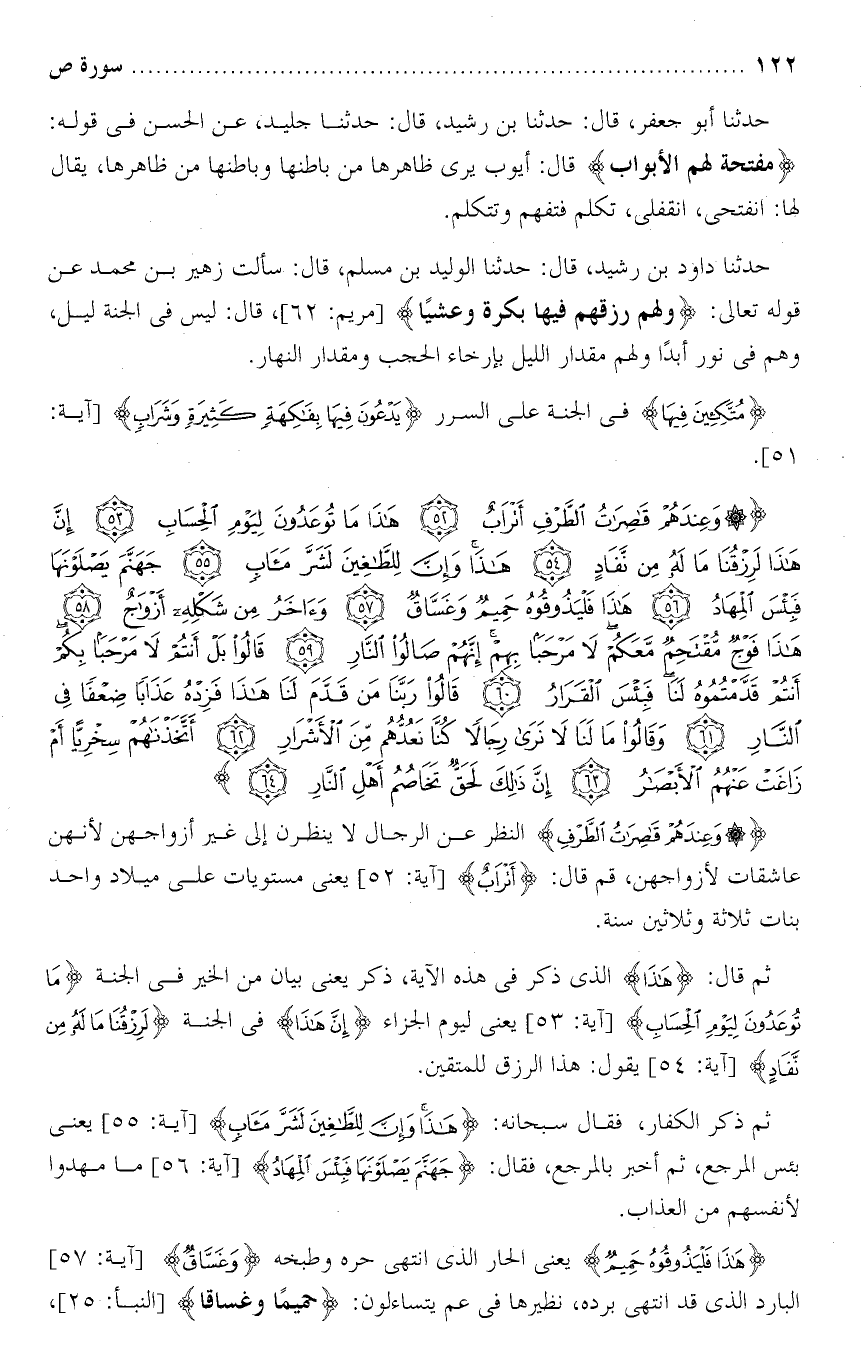 ١٢٢ ........................................................................ سورة ص
حدثنا أبو جعفر، قال: حدثنا بن رشيد، قال: حدثنـا جليـد، عـن الحسـن فـى قولـه:
﴿مفتحة لهم الأبواب﴾ قال: أيوب يرى ظاهرها من باطنها وباطنها من ظاهرها، يقال
لها: انفتحى، انقفلى، تكلم فتفهم وتتكلم.
حدثنا داود بن رشيد، قال: حدثنا الوليد بن مسلم، قال: سألت زهير بـن محمـد عـن
قوله تعالى: ﴿ولهم رزقهم فيها بكرة وعشيًا﴾ [مريم: ٦٢]، قال: ليس فى الجنة ليـل،
وهم فى نور أبدًا ولهم مقدار الليل بإرخاء الحجب ومقدار النهار.
﴿مُتَّكِئِينَ فِيهَا﴾ فـى الجنـة علـى السـرر ﴿يَدْعُونَ فِيهَا بِفَاكِهَةٍ كَثِيرَةٍ وَشَرَابٍ﴾ [آيـة:
٥١].
﴿۞ وَعِندَهُمْ قَاصِرَاتُ الطَّرْفِ أَتْرَابٌ ٥٢ هَٰذَا مَا تُوعَدُونَ لِيَوْمِ الْحِسَابِ ٥٣ إِنَّ
هَٰذَا لَرِزْقُنَا مَا لَهُ مِن نَّفَادٍ ٥٤ هَٰذَا ۚ وَإِنَّ لِلطَّاغِينَ لَشَرَّ مَآبٍ ٥٥ جَهَنَّمَ يَصْلَوْنَهَا
فَبِئْسَ الْمِهَادُ ٥٦ هَٰذَا فَلْيَذُوقُوهُ حَمِيمٌ وَغَسَّاقٌ ٥٧ وَءَاخَرُ مِن شَكْلِهِ أَزْوَاجٌ ٥٨
هَٰذَا فَوْجٌ مُّقْتَحِمٌ مَّعَكُمْ ۖ لَا مَرْحَبًا بِهِمْ ۚ إِنَّهُمْ صَالُوا النَّارِ ٥٩ قَالُوا بَلْ أَنتُمْ لَا مَرْحَبًا بِكُمْ ۖ
أَنتُمْ قَدَّمْتُمُوهُ لَنَا ۖ فَبِئْسَ الْقَرَارُ ٦٠ قَالُوا رَبَّنَا مَن قَدَّمَ لَنَا هَٰذَا فَزِدْهُ عَذَابًا ضِعْفًا فِى
النَّارِ ٦١ وَقَالُوا مَا لَنَا لَا نَرَىٰ رِجَالًا كُنَّا نَعُدُّهُم مِّنَ الْأَشْرَارِ ٦٢ أَتَّخَذْنَاهُمْ سِخْرِيًّا أَمْ
زَاغَتْ عَنْهُمُ الْأَبْصَارُ ٦٣ إِنَّ ذَٰلِكَ لَحَقٌّ تَخَاصُمُ أَهْلِ النَّارِ ٦٤ ﴾
﴿۞ وَعِندَهُمْ قَاصِرَاتُ الطَّرْفِ﴾ النظر عـن الرجـال لا ينظـرن إلى غـير أزواجـهن لأنـهن
عاشقات لأزواجهن، قم قال: ﴿أَتْرَابٌ﴾ [آية: ٥٢] يعنى مستويات علـى ميـلاد واحـد
بنات ثلاثة وثلاثين سنة.
ثم قال: ﴿هَٰذَا﴾ الذى ذكر فى هذه الآية، ذكر يعنى بيان من الخير فـى الجنـة ﴿مَا
تُوعَدُونَ لِيَوْمِ الْحِسَابِ﴾ [آية: ٥٣] يعنى ليوم الجزاء ﴿إِنَّ هَٰذَا﴾ فى الجنـة ﴿لَرِزْقُنَا مَا لَهُ مِن
نَّفَادٍ﴾ [آية: ٥٤] يقول: هذا الرزق للمتقين.
ثم ذكر الكفار، فقـال سـبحانه: ﴿هَٰذَا ۚ وَإِنَّ لِلطَّاغِينَ لَشَرَّ مَآبٍ﴾ [آيـة: ٥٥] يعنـى
بئس المرجع، ثم أخبر بالمرجع، فقال: ﴿جَهَنَّمَ يَصْلَوْنَهَا فَبِئْسَ الْمِهَادُ﴾ [آية: ٥٦] مـا مـهدوا
لأنفسهم من العذاب.
﴿هَٰذَا فَلْيَذُوقُوهُ حَمِيمٌ﴾ يعنى الحار الذى انتهى حره وطبخه ﴿وَغَسَّاقٌ﴾ [آيـة: ٥٧]
البارد الذى قد انتهى برده، نظيرها فى عم يتساءلون: ﴿حميمًا وغساقا﴾ [النبـأ: ٢٥]،